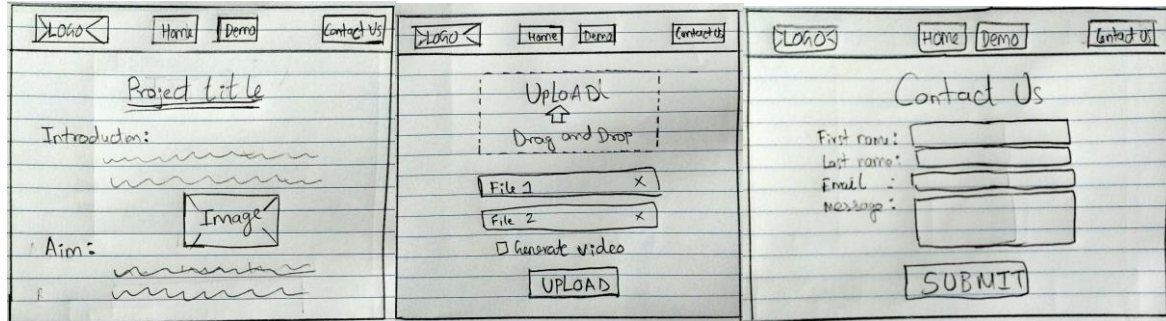 LOGO Home Demo Contact Us
Project title
Introduction:
Image
Aim:
LOGO Home Demo Contact Us
UPLOAD
Drag and Drop
File 1 X
File 2 X
Generate video
UPLOAD
LOGO Home Demo Contact Us
Contact Us
First name:
Last name:
Email :
Message:
SUBMIT